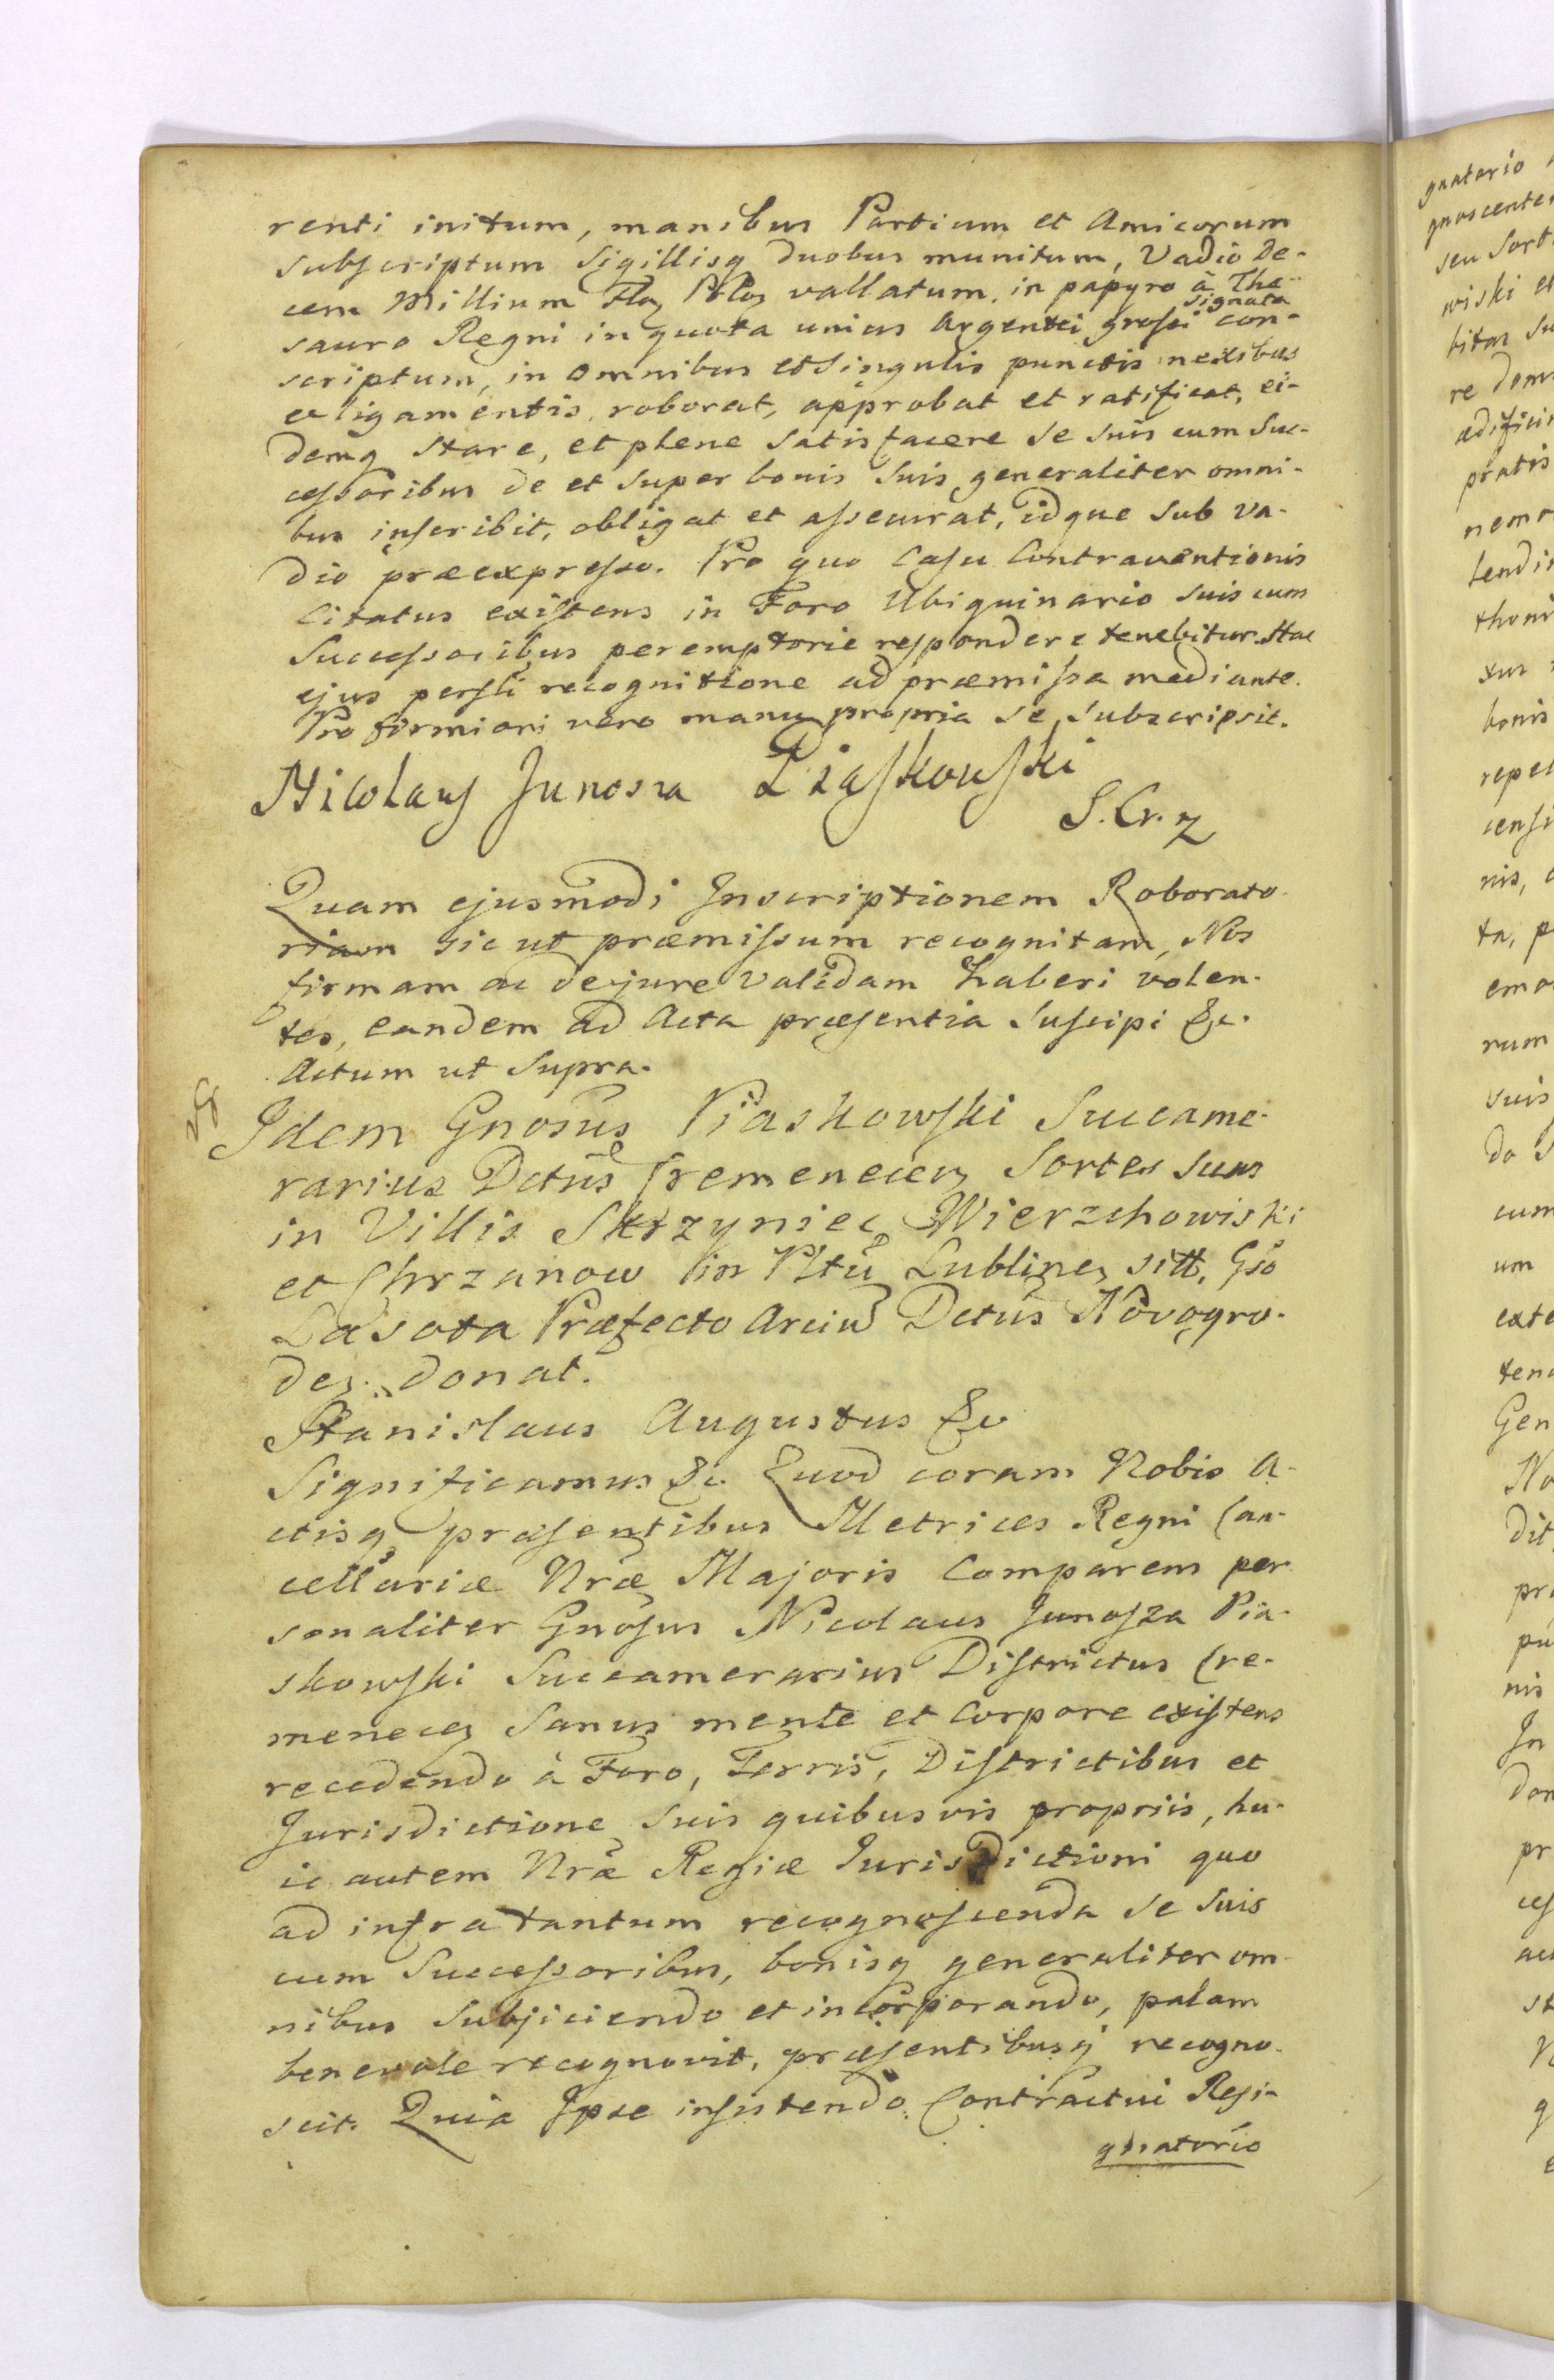 renti initum, manibus Partium et Amicorum
subscriptum Sigillisq duobus munitum, Vadio De-
cem Millium Flor Polo vallatum, in papyro à The-
signata
sauro Regni in quota unius Argentei grossi con-
scriptum, in omnibus et Singulis punctis nexibus
et ligamentis, roborat, approbat et ratificat, ei-
demq stare, et plene Satisfacere Se suis cum Suc-
cessoribus de et Super bonis Suis generaliter omni-
bus inscribit, obligat et assecurat, idque Sub va-
dio præexpresso. Pro quo Casu Contraventionis
Citatus existens in Foro Ubiquinario Suis cum
Successoribus peremptorie respondere tenebitur. Hac
ejus persli recognitione ad præmissa mediante.
Pro firmiori vero manu propria Se Subscripsit.
Nicolaus Junosza Piaskowski
S. Cr.
Quam ejusmodi Inscriptionem Roborato-
riam sicut præmissum recognitam, Nos
firmam ac de jure validam haberi volen-
tes, eandem ad Acta præsentia Suscipi &c.
Actum ut Supra.
Idem Gnosus Piaskowski Succame-
rarius Dctus Cremenecen Sortes suas
in Villis Skrzyniec, Wierzchowiski
et Chrzanow in Pltu Lublinen sitt, Gso
Lasota Præfecto Arcium Dctus Novogro-
den. donat.
Stanislaus Augustus &c
Significamus &c. Quod coram Nobis A-
ctisq præsentibus Metrices Regni Can-
cellariæ Nræ Majoris Comparens per
sonaliter Gnosus Nicolaus Junosza Pia-
skowski Succamerarius Districtus Cre-
menecen Sanus mente et Corpore existens
recedendo à Foro, Terris, Districtibus et
Jurisdictione Suis quibusvis propriis, hu-
ic autem Nræ Regiæ Jurisdictioni quo
ad infra tantum recognoscenda Se Suis
cum Successoribus, bonisq generaliter om-
nibus Subjiciendo et incorporando, palam
benevole recognovit, præsentibusq recogno-
scit. Quia Ipse insistendo Contractui Resi-
gnatorio